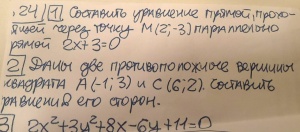 ,24) 1) Составить уравнение прямой, прохо-
ящей через точку M(2;-3) параллельно
рямой 2x+3=0
2) Даны две противоположные вершины
квадрата A(-1;3) и C(6;2). Составить
равнения его сторон.
3) 2x²+3y²+8x-6y+11=0